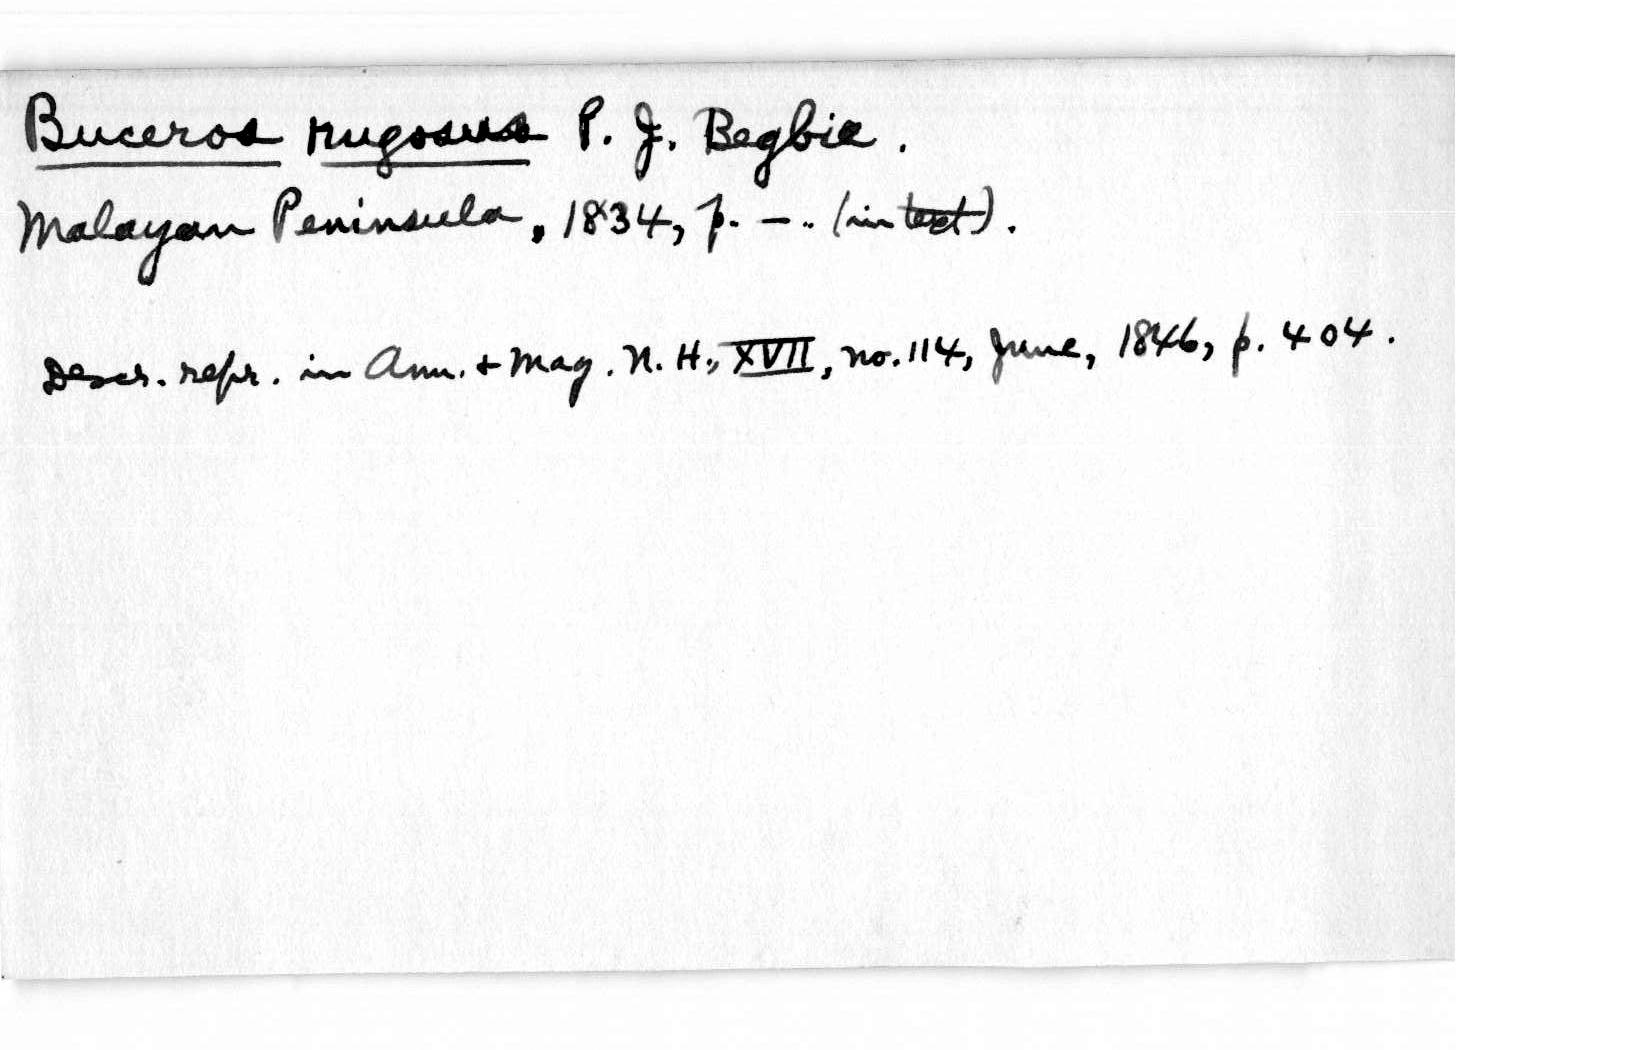 Buceros rugosus P. J. Begbie.
Malayan Peninsula, 1834, p. -.. (in text).
Descr. repr. in Ann. + Mag. N. H., XVII, no. 114, June, 1846, p. 404.